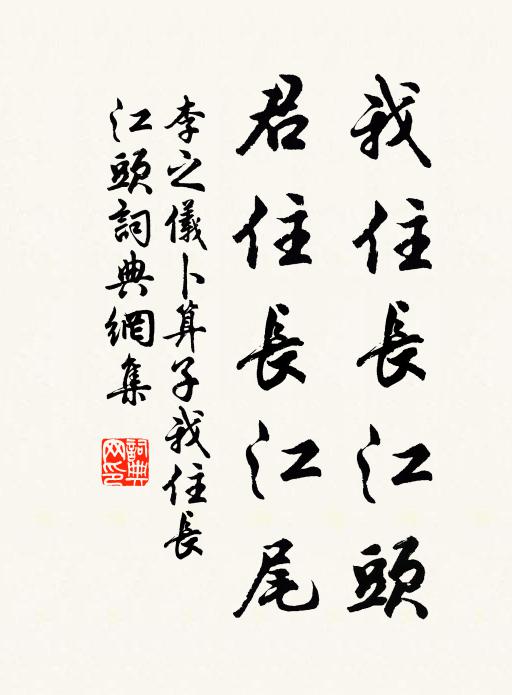 我住長江頭
君住長江尾
李之儀卜算子我住長
江頭詞典網集
詞典
网印